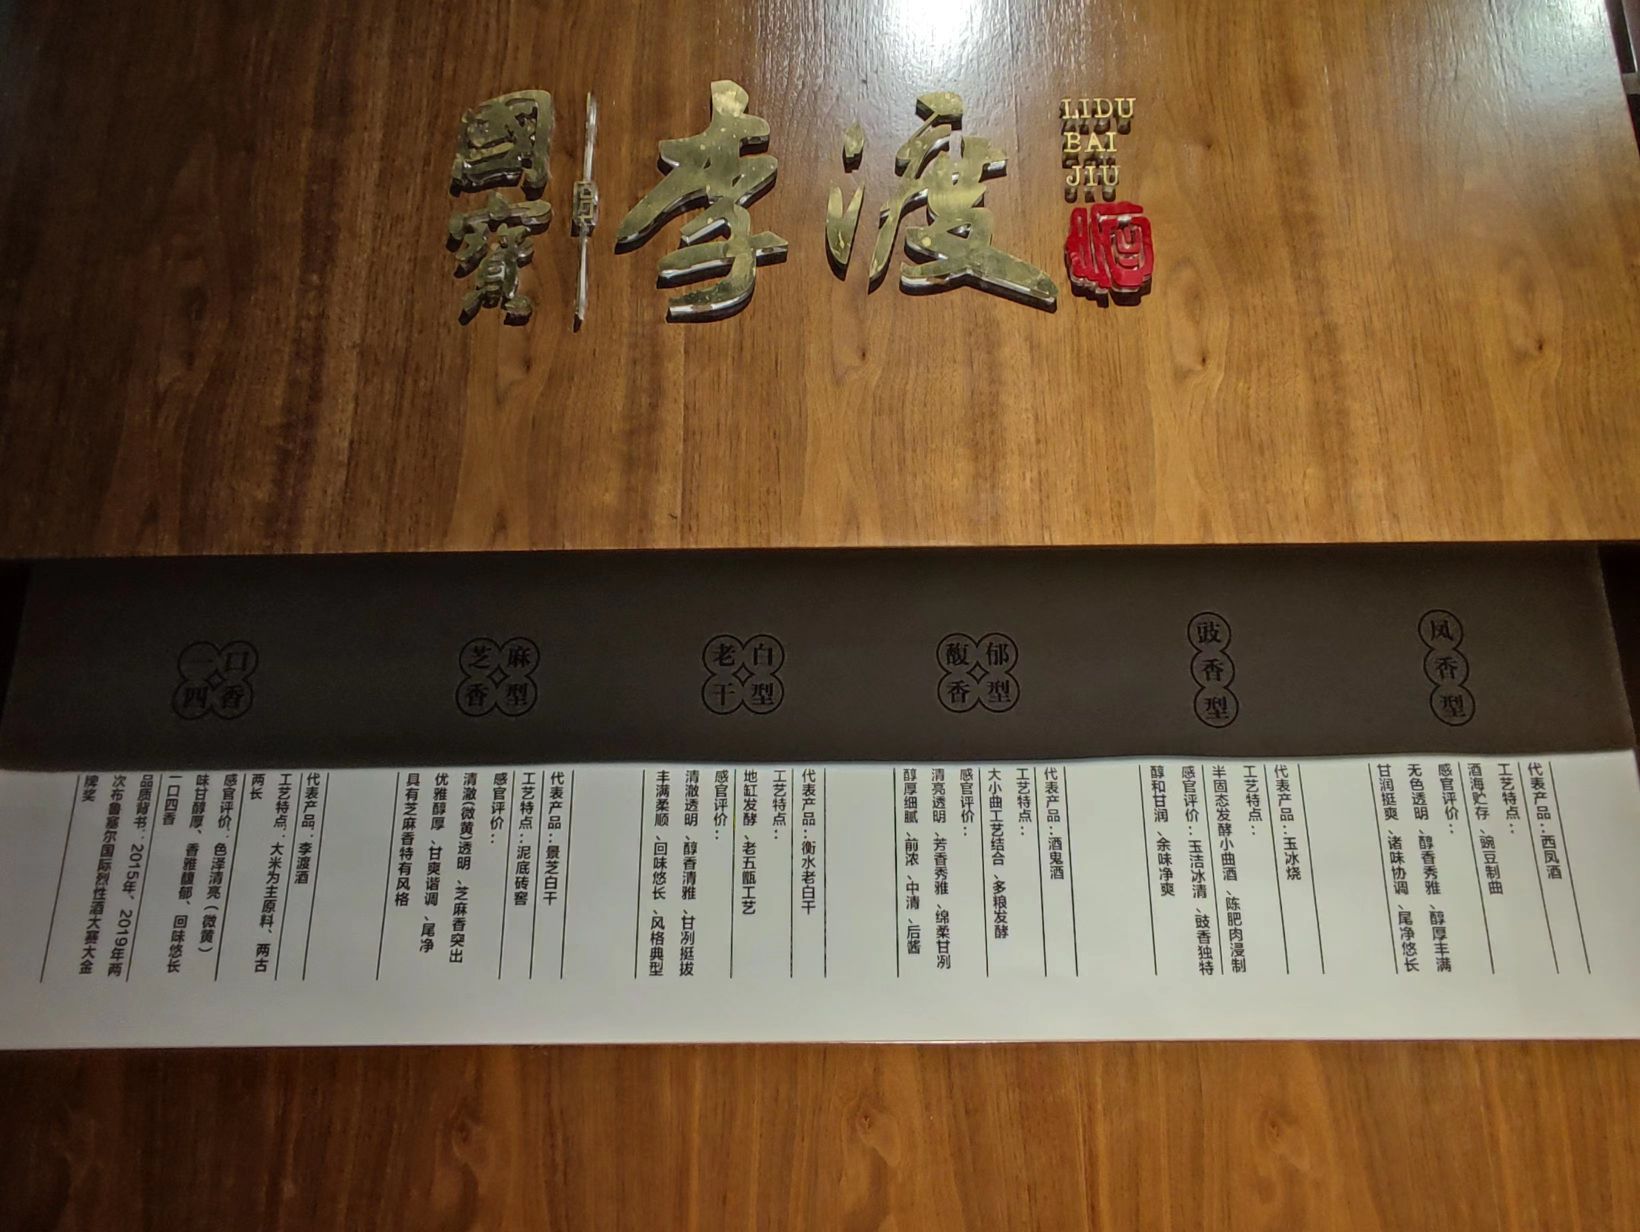 國寶
李渡
LIDU
BAI
JIU
酒
凤香型
代表产品：西凤酒
工艺特点：
酒海贮存、豌豆制曲
感官评价：
无色透明、醇香秀雅、醇厚丰满
甘润挺爽、诸味协调、尾净悠长
豉香型
代表产品：玉冰烧
工艺特点：
半固态发酵小曲酒、陈肥肉浸制
感官评价：玉洁冰清、豉香独特
醇和甘润、余味净爽
馥郁香型
代表产品：酒鬼酒
工艺特点：
大小曲工艺结合、多粮发酵
感官评价：
清亮透明、芳香秀雅、绵柔甘冽
醇厚细腻、前浓、中清、后酱
老白干型
代表产品：衡水老白干
工艺特点：
地缸发酵、老五甑工艺
感官评价：
清澈透明、醇香清雅、甘冽挺拔
丰满柔顺、回味悠长、风格典型
芝麻香型
代表产品：景芝白干
工艺特点：泥底砖窖
感官评价：
清澈(微黄)透明、芝麻香突出
优雅醇厚、甘爽谐调、尾净
具有芝麻香特有风格
一口四香
代表产品：李渡酒
工艺特点：大米为主原料、两古
两长
感官评价：色泽清亮（微黄）
味甘醇厚、香雅馥郁、回味悠长
一口四香
品质背书：2015年、2019年两
次布鲁塞尔国际烈性酒大赛大金
牌奖